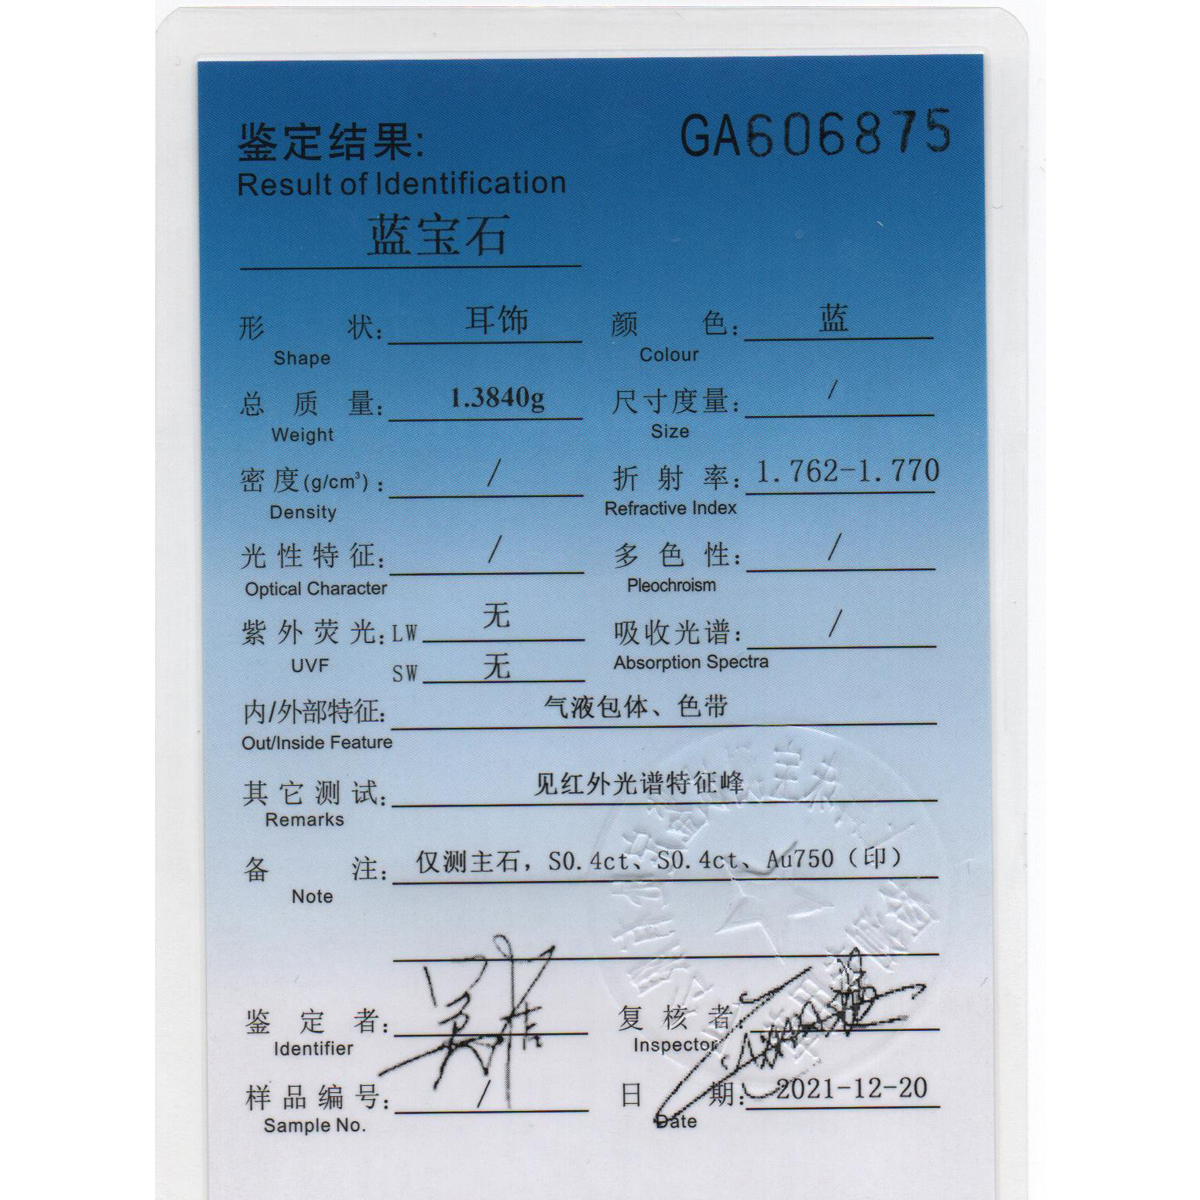 鉴定结果:
GA606875
Result of Identification
蓝宝石
形 状: 耳饰 颜 色: 蓝
Shape Colour
总 质 量: 1.3840g 尺寸度量: /
Weight Size
密度(g/cm³): / 折 射 率: 1.762-1.770
Density Refractive Index
光性特征: / 多 色 性: /
Optical Character Pleochroism
紫外荧光: LW 无 吸收光谱: /
UVF SW 无 Absorption Spectra
内/外部特征: 气液包体、色带
Out/Inside Feature
其它测试: 见红外光谱特征峰
Remarks
备 注: 仅测主石, S0.4ct、S0.4ct、Au750(印)
Note
鉴 定 者: 复 核 者:
Identifier Inspector
样品编号: / 日 期: 2021-12-20
Sample No. Date